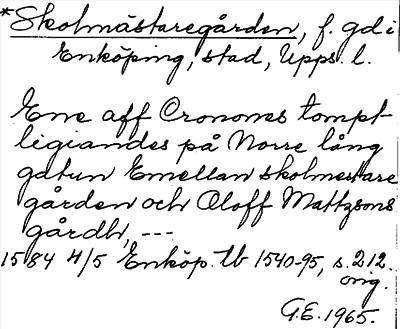 *Skolmästaregården, f. gd i
Enköping, stad, Upps. l.
Ene aff Cronones tompt
ligiandes på Norre lång
gatun Emellan skolmestare
gården och Oloff Mattzsons
gårdh, ---
1584 4/5 Enköp. tb 1540-95, s. 212.
orig.
G.E. 1965.